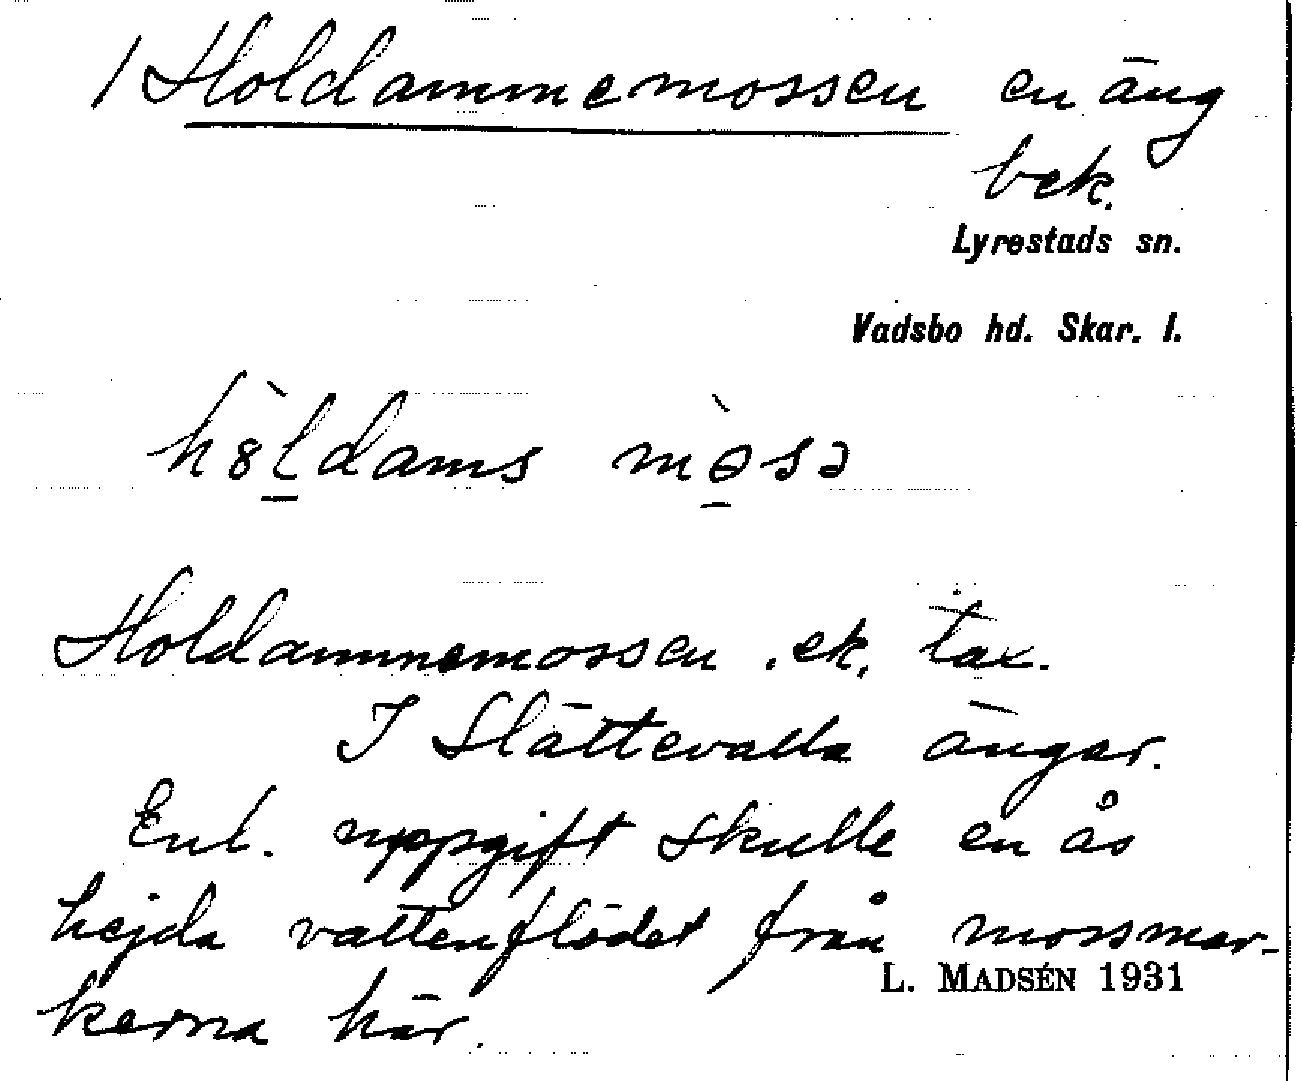 / Holdammemossen en äng
bek.
Lyrestads sn.
Vadsbo hd. Skar. l.
hòldams mòsə
Holdammemossen. ek. tax.
I Slättevalla ängar.
Enl. uppgift skulle en ås
hejda vattenflödet från mossmar-
L. MADSÉN 1931
kerna här.